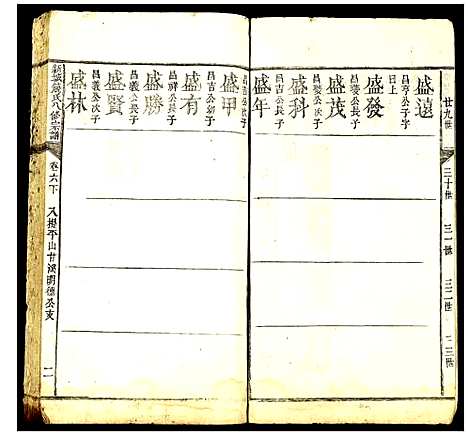 廿九世
三十世
三一世
三二世
三三世
盛遠
昌亨公子子
盛發
日上
盛茂
昌燮公長子
盛科
昌燮公次子
盛年
昌吉公長子
盛甲
昌吉公次子
盛有
昌吉公幼子
盛勝
昌義公長子
盛賢
昌義公長子
盛林
昌義公次子
氏八修宗譜
卷六下
入楊平山甘溪明德公支
二